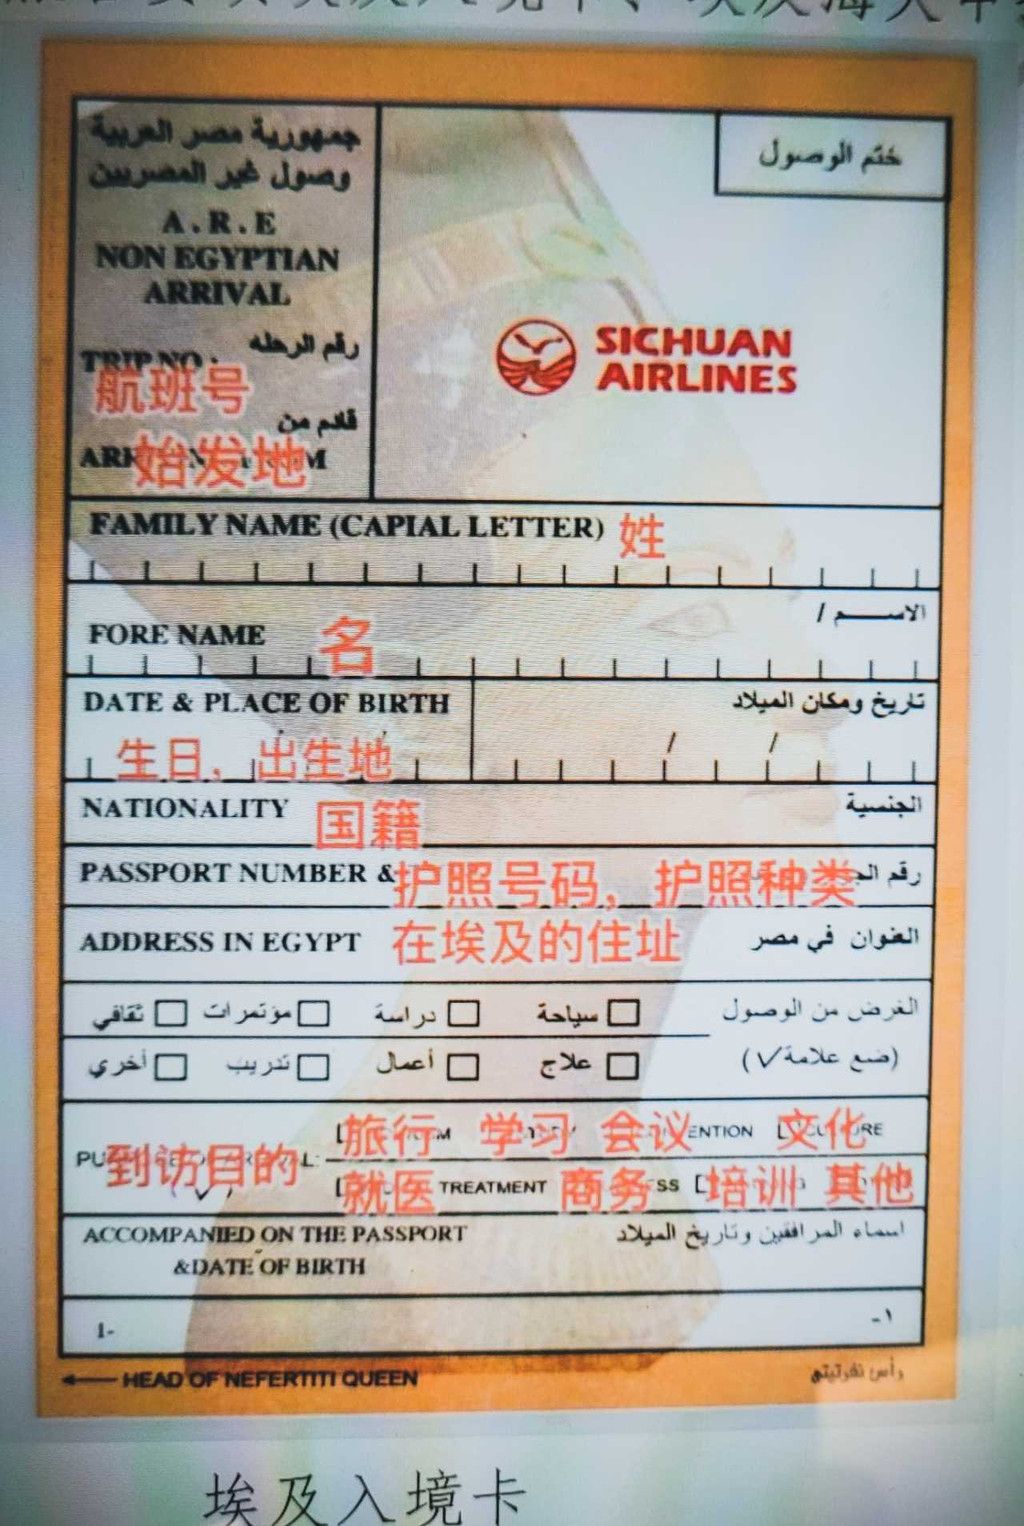 جمهورية مصر العربية
وصول غير المصريين
A.R.E
NON EGYPTIAN
ARRIVAL
ختم الوصول
رقم الرحله
TRIP NO :
航班号
قادم من
始发地
SICHUAN
AIRLINES
FAMILY NAME (CAPIAL LETTER) 姓
الاســـم /
FORE NAME 名
DATE & PLACE OF BIRTH تاريخ ومكان الميلاد
/ /
生日，出生地
NATIONALITY 国籍 الجنسية
PASSPORT NUMBER & 护照号码，护照种类 رقم
ADDRESS IN EGYPT 在埃及的住址 العنوان في مصر
الغرض من الوصول سياحة دراسة مؤتمرات ثقافي
(ضع علامة √) علاج أعمال تدريب أخري
旅行 学习 会议 文化
到访目的
就医 TREATMENT 商务 培训 其他
ACCOMPANIED ON THE PASSPORT اسماء المرافقين وتاريخ الميلاد
&DATE OF BIRTH
1- ١-
HEAD OF NEFERTITI QUEEN رأس نفرتيتي
埃及入境卡